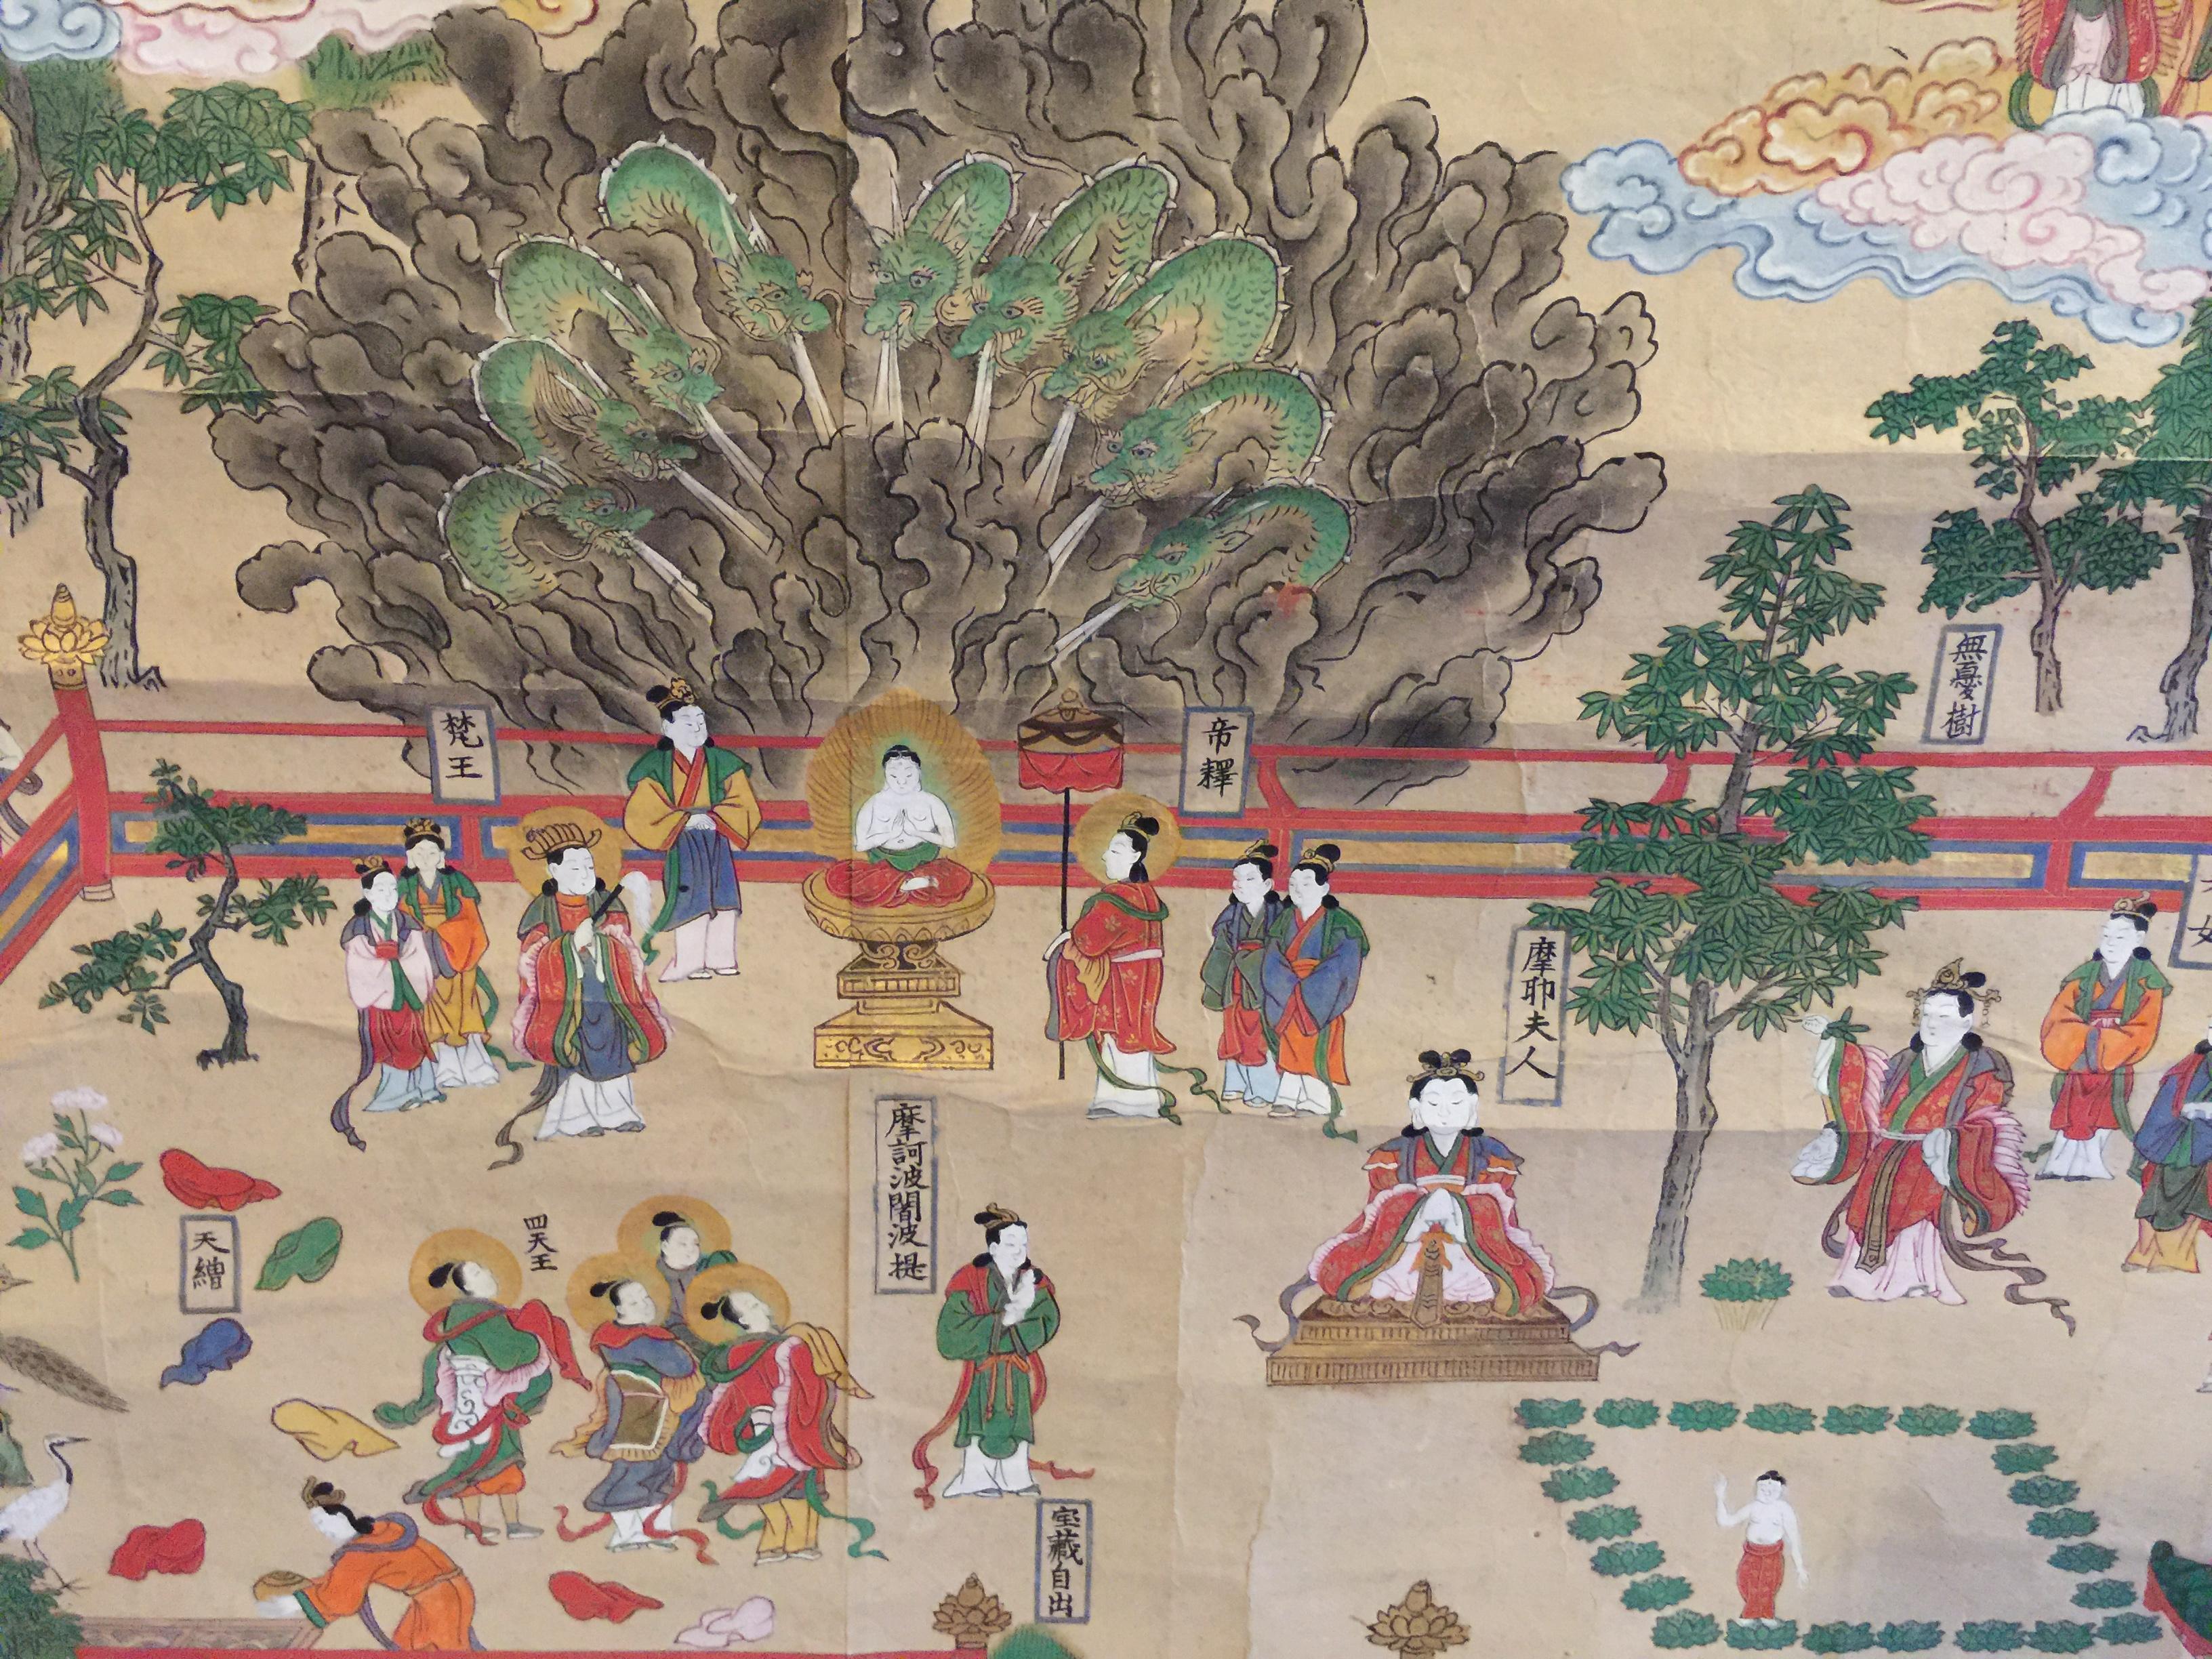 無憂樹
帝釋
梵王
摩耶夫人
摩訶波闍波提
四天王
天繒
宝藏自出
女